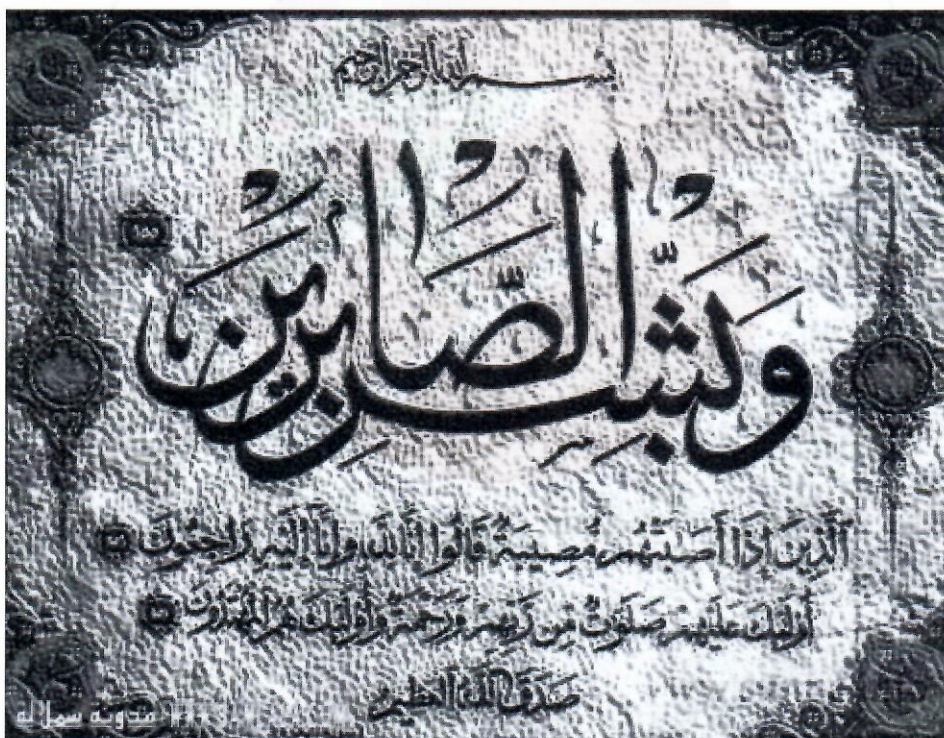 بسم الله الرحمن الرحيم
وَبَشِّرِ الصَّابِرِينَ
ٱلَّذِينَ إِذَا أَصَٰبَتۡهُم مُّصِيبَةٞ قَالُوٓاْ إِنَّا لِلَّهِ وَإِنَّآ إِلَيۡهِ رَٰجِعُونَ
أُوْلَٰٓئِكَ عَلَيۡهِمۡ صَلَوَٰتٞ مِّن رَّبِّهِمۡ وَرَحۡمَةٞ وَأُوْلَٰٓئِكَ هُمُ ٱلۡمُهۡتَدُونَ
صدق الله العظيم
مدونة سملاله